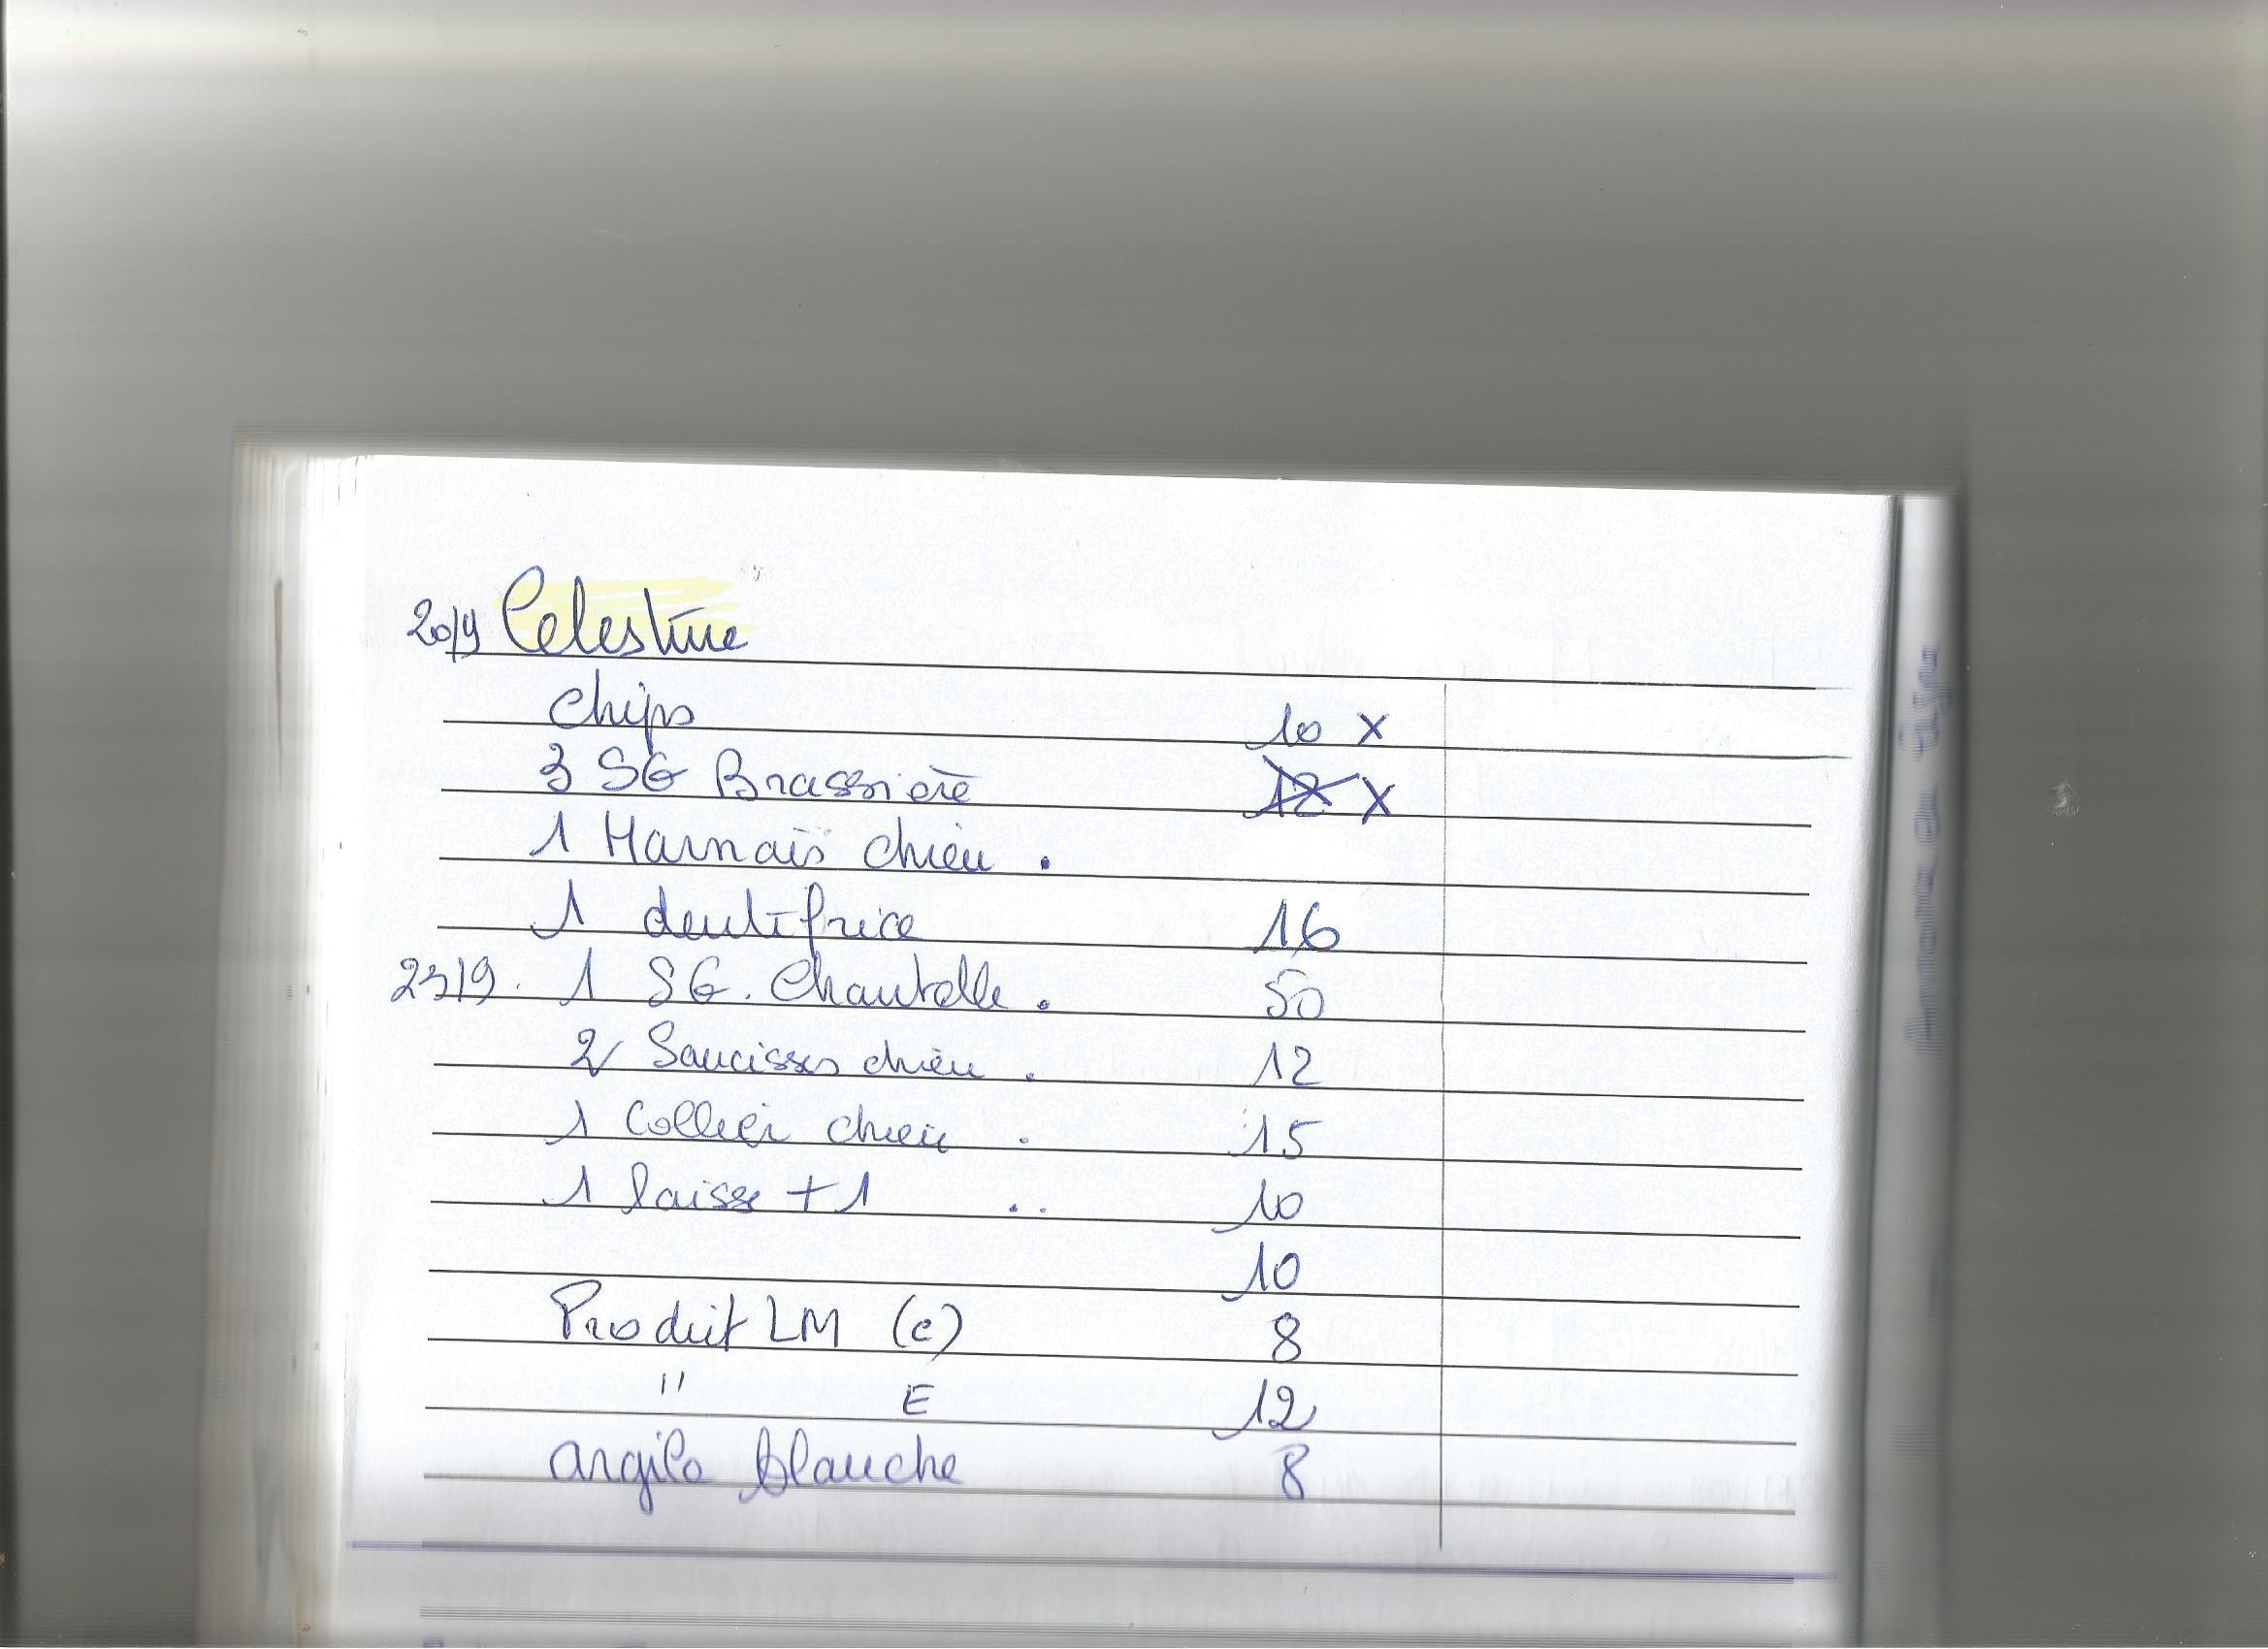 20/9 Celestine
chips 10 x
3 SG Brassière 12 x
1 Harnais chien .
1 dentifrice 16
23/9. 1 SG. Chantelle . 50
2 Saucisses chien . 12
1 Collier chien . 15
1 laisse + 1 .. 10
10
Produit LM (c) 8
" E 12
argile blanche 8